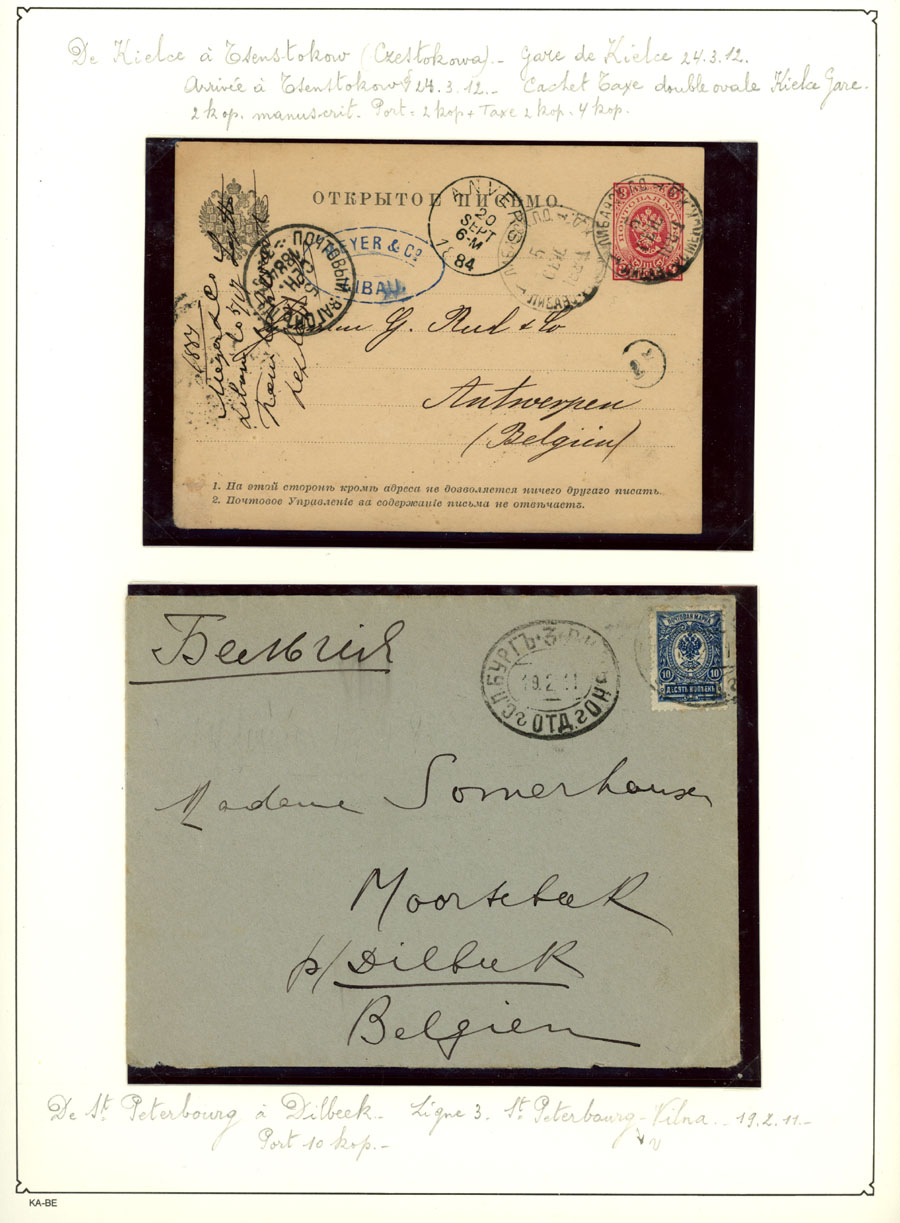 De Kielce à Tsenstokow (Czestokowa).- Gare de Kielce 24.3.12.
Arrivée à Tsenstokow 24.3.12.- Cachet Taxe double ovale Kielce Gare.
2 kop. manuscrit. Port = 2 kop + Taxe 2 kop. 4 kop.
ОТКРЫТОЕ ПИСЬМО.
ANVERS
20
SEPT
6-M
1884
ПОЧТОВЫЙ ВАГОНЪ
MEYER & Co
LIBAU
G. Rud & Co
Antwerpen
(Belgien)
1884
Meyer & Co
Libau
1. На этой сторонѣ кромѣ адреса не дозволяется ничего другаго писать.
2. Почтовое Управленіе за содержаніе письма не отвѣчаетъ.
Бельгия
С.П.БУРГЪ·3·
19.2.11
ОТД.
ПОЧТОВАЯ МАРКА
10 10
ДЕСЯТЬ КОПѢЕКЪ
Madame Somerhausen
Moortebeek
p/Dilbeek
Belgien
De St Peterbourg à Dilbeek.- Ligne 3. St Peterbourg-Vilna.. 19.2.11.-
v
Port 10 kop.-
KA-BE